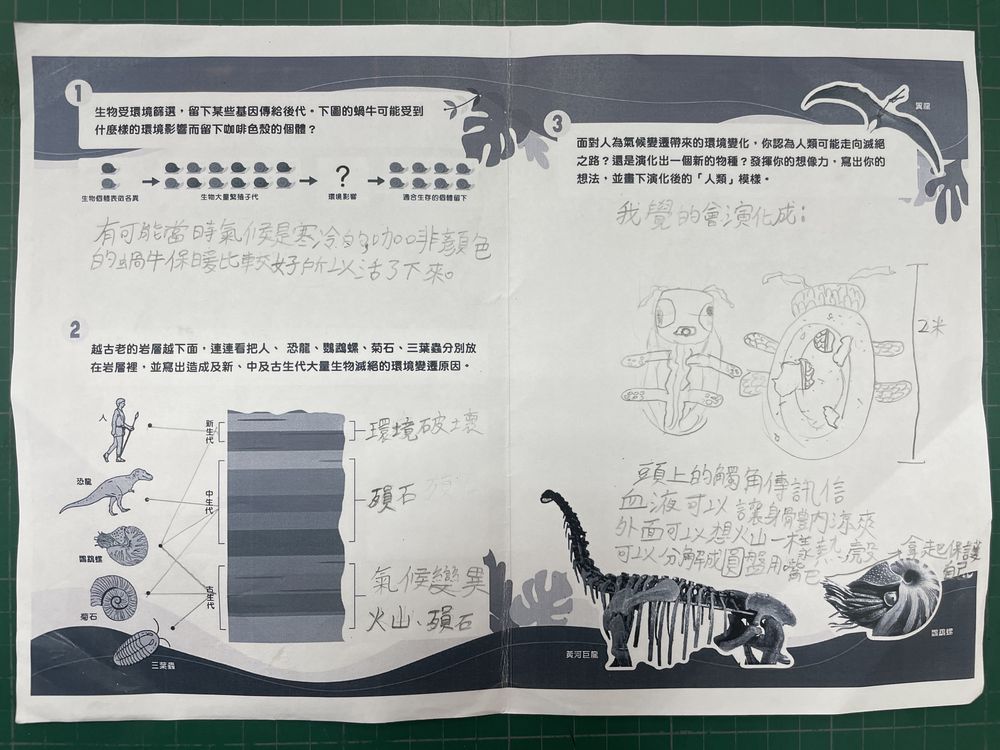 1
生物受環境篩選，留下某些基因傳給後代。下圖的蝸牛可能受到
什麼樣的環境影響而留下咖啡色殼的個體？
?
生物個體表徵各異
生物大量繁殖子代
環境影響
適合生存的個體留下
有可能當時氣候是寒冷的咖啡顏色
的蝸牛保暖比較好所以活了下來。
2
越古老的岩層越下面，連連看把人、恐龍、鸚鵡螺、菊石、三葉蟲分別放
在岩層裡，並寫出造成及新、中及古生代大量生物滅絕的環境變遷原因。
人
恐龍
鸚鵡螺
菊石
三葉蟲
新生代
中生代
古生代
環境破壞
殞石
氣候變異
火山、殞石
3
面對人為氣候變遷帶來的環境變化，你認為人類可能走向滅絕
之路？還是演化出一個新的物種？發揮你的想像力，寫出你的
想法，並畫下演化後的「人類」模樣。
翼龍
我覺的會演化成：
2米
頭上的觸角傳訊信
血液可以讓身體內涼爽
外面可以想火山一樣熱，殼
可以分解成圓盤用嘴巴
拿起保護
自己
黃河巨龍
鸚鵡螺